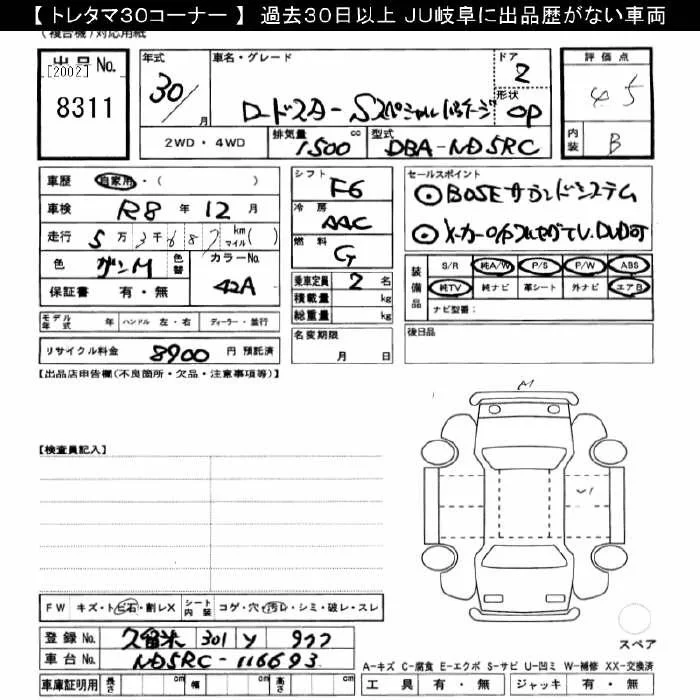 【トレタマ30コーナー】 過去30日以上 JU岐阜に出品歴がない車両
(複合機)対応用紙
出品No. [2002] 8311
年式 30/ 月
車名・グレード ロードスター Sスペシャルパッケージ
ドア 2
形状 OP
評価点 4 5
内装 B
2WD・4WD
排気量 1500 cc
型式 DBA-ND5RC
車歴 自家用・( )
車検 R8年 12月
走行 5万 3千 6 8 7 km マイル( )
色 ガンM 色替
カラーNo. 42A
保証書 有・無
シフト F6
冷房 AAC
燃料 G
乗車定員 2名
積載量 kg
総重量 kg
セールスポイント
⊙BOSEサウンドシステム
⊙メーカーO/P フルセグTV.DVD可
装備品 S/R 純A/W P/S P/W ABS
純TV 純ナビ 革シート 外ナビ エアB
ナビ型番:
モデル年式 年 ハンドル 左・右 ディーラー・並行
リサイクル料金 8900 円 預託済
名変期限 月 日
後日品
【出品店申告欄(不良箇所・欠品・注意事項等)】
M
【検査員記入】
FW キズ・トビ石・割レX シート内装 コゲ・穴・汚レ・シミ・破レ・スレ
登録No. 久留米 301
スペア
車台No. ND5RC-116693
A-キズ C-腐食 E-エクボ S-サビ U-凹ミ W-補修 XX-交換済
車庫証明用 長さ cm 幅 cm 高さ cm
工具 有・無 ジャッキ 有・無